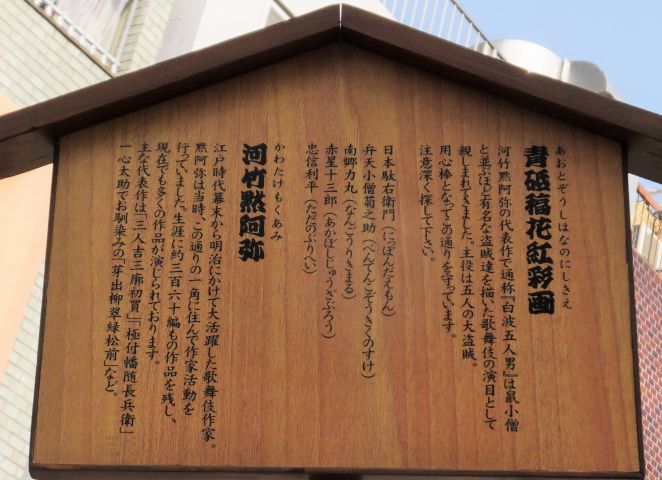 あおとぞうしはなのにしきえ
青砥稿花紅彩画
河竹黙阿弥の代表作で通称『白波五人男』は鼠小僧
と並ぶほど有名な盗賊達を描いた歌舞伎の演目として
親しまれてきました。主役は五人の大盗賊。
用心棒となってこの通りを守っています。
注意深く探して下さい。
日本駄右衛門(にっぽんだえもん)
弁天小僧菊之助(べんてんこぞうきくのすけ)
南郷力丸(なんごうりきまる)
赤星十三郎(あかぼしじゅうざぶろう)
忠信利平(ただのぶりへい)
かわたけもくあみ
河竹黙阿弥
江戸時代幕末から明治にかけて大活躍した歌舞伎作家。
黙阿弥は当時、この通りの一角に住んで作家活動を
行っていました。生涯に約三百六十編もの作品を残し、
現在でも多くの作品が演じられております。
主な代表作は「三人吉三廓初買」「極付幡随長兵衛」
一心太助でお馴染みの「芽出柳翠緑松前」など。